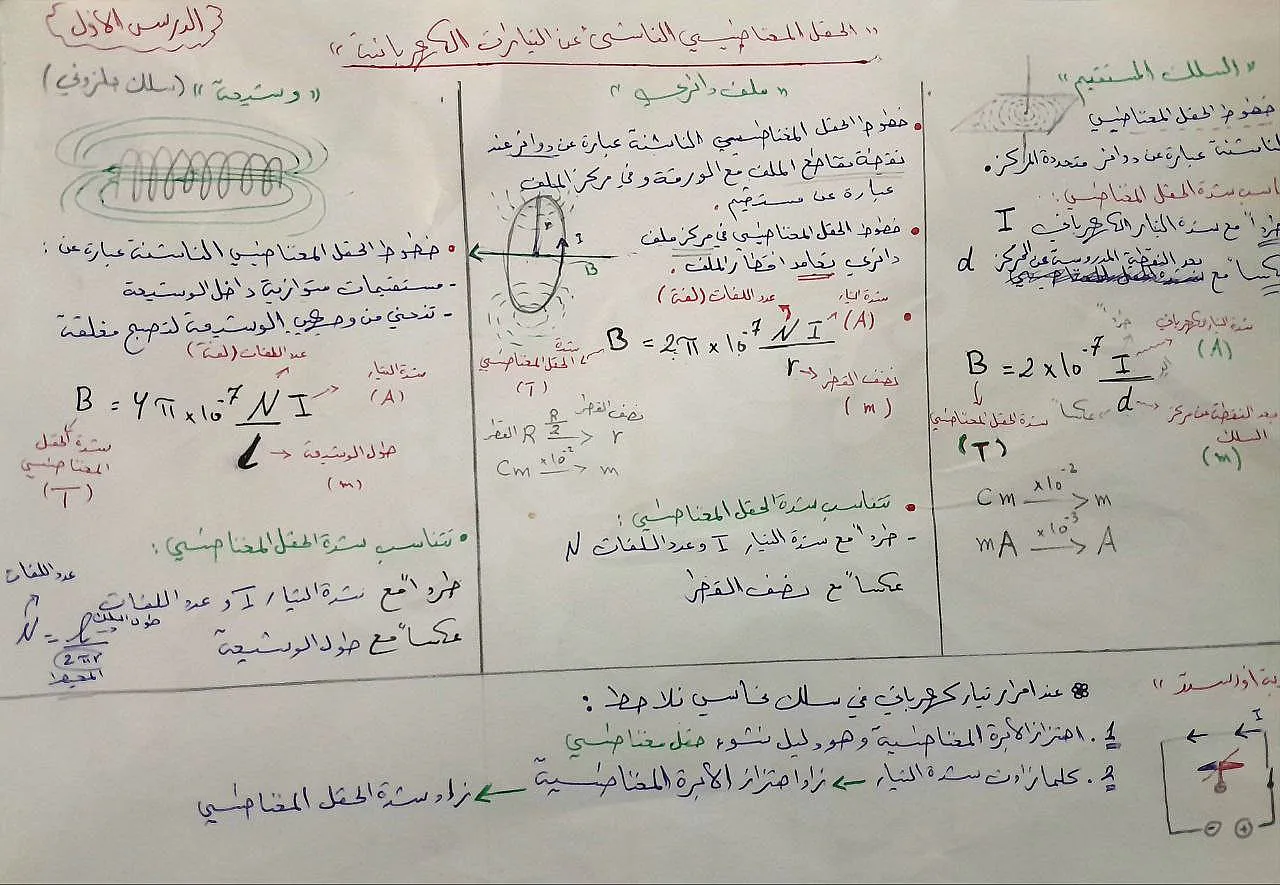 {الدرس الأول}
"الحقل المغناطيسي الناشئ عن التيارات الكهربائية"
"السلك المستقيم"
خطوط الحقل المغناطيسي
الناشئة عبارة عن دوائر متحدة المركز.
شدة الحقل المغناطيسي:
طرداً مع شدة التيار الكهربائي I
عكساً مع بعد النقطة المدروسة عن المركز d
شدة التيار الكهربائي
(A)
B = 2 × 10⁻⁷ I / d
شدة الحقل المغناطيسي
(T)
عكساً
بعد النقطة عن مركز
السلك
(m)
Cm ×10⁻² → m
mA ×10⁻³ → A
"ملف دائري"
• خطوط الحقل المغناطيسي الناشئة عبارة عن دوائر عند
نقطة تقاطع الملف مع الورقة وفي مركز الملف
عبارة عن مستقيم.
r I B
• خطوط الحقل المغناطيسي في مركز ملف
دائري يعامد أقطار الملف.
عدد اللفات (لفة)
شدة التيار
(A)
B = 2π × 10⁻⁷ N I / r
شدة
الحقل المغناطيسي
(T)
نصف القطر
(m)
القطر R R/2 → r نصف القطر
Cm ×10⁻² → m
• تتناسب شدة الحقل المغناطيسي:
- طرداً مع شدة التيار I وعدد اللفات N
عكساً مع نصف القطر
"وشيعة" (سلك حلزوني)
• خطوط الحقل المغناطيسي الناشئة عبارة عن:
- مستقيمات متوازية داخل الوشيعة
- تنحني من وجهي الوشيعة لتصبح مغلقة
عدد اللفات (لفة)
شدة التيار
(A)
B = 4π × 10⁻⁷ N I / L
شدة الحقل
المغناطيسي
(T)
طول الوشيعة
(m)
• تتناسب شدة الحقل المغناطيسي:
طرداً مع شدة التيار I و عدد اللفات
عكساً مع طول الوشيعة
عدد اللفات
طول السلك
N = l / 2πr
المحيط
أورستد"
I
عند إمرار تيار كهربائي في سلك نحاسي نلاحظ:
1. اهتزاز الابرة المغناطيسية وهو دليل نشوء حقل مغناطيسي
2. كلما زادت شدة التيار ← زاد اهتزاز الابرة المغناطيسية ← زاد شدة الحقل المغناطيسي
- +